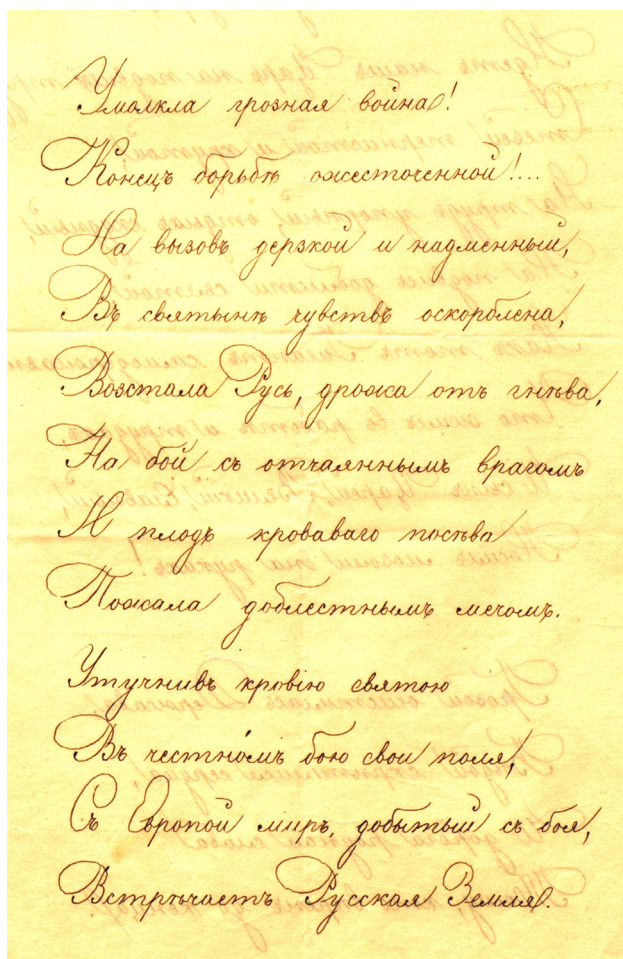 Умолкла грозная война!
Конецъ борьбѣ ожесточенной!...
На вызовъ дерзкой и надменный,
Въ святынѣ чувствъ оскорблена,
Возстала Русь, дрожа отъ гнѣва,
На бой съ отчаяннымъ врагомъ
И плодъ кроваваго посѣва
Пожала доблестнымъ мечомъ.
Утучнивъ кровію святою
Въ честно́мъ бою свои поля,
Съ Европой миръ, добытый съ боя,
Встрѣчаетъ Русская Земля.